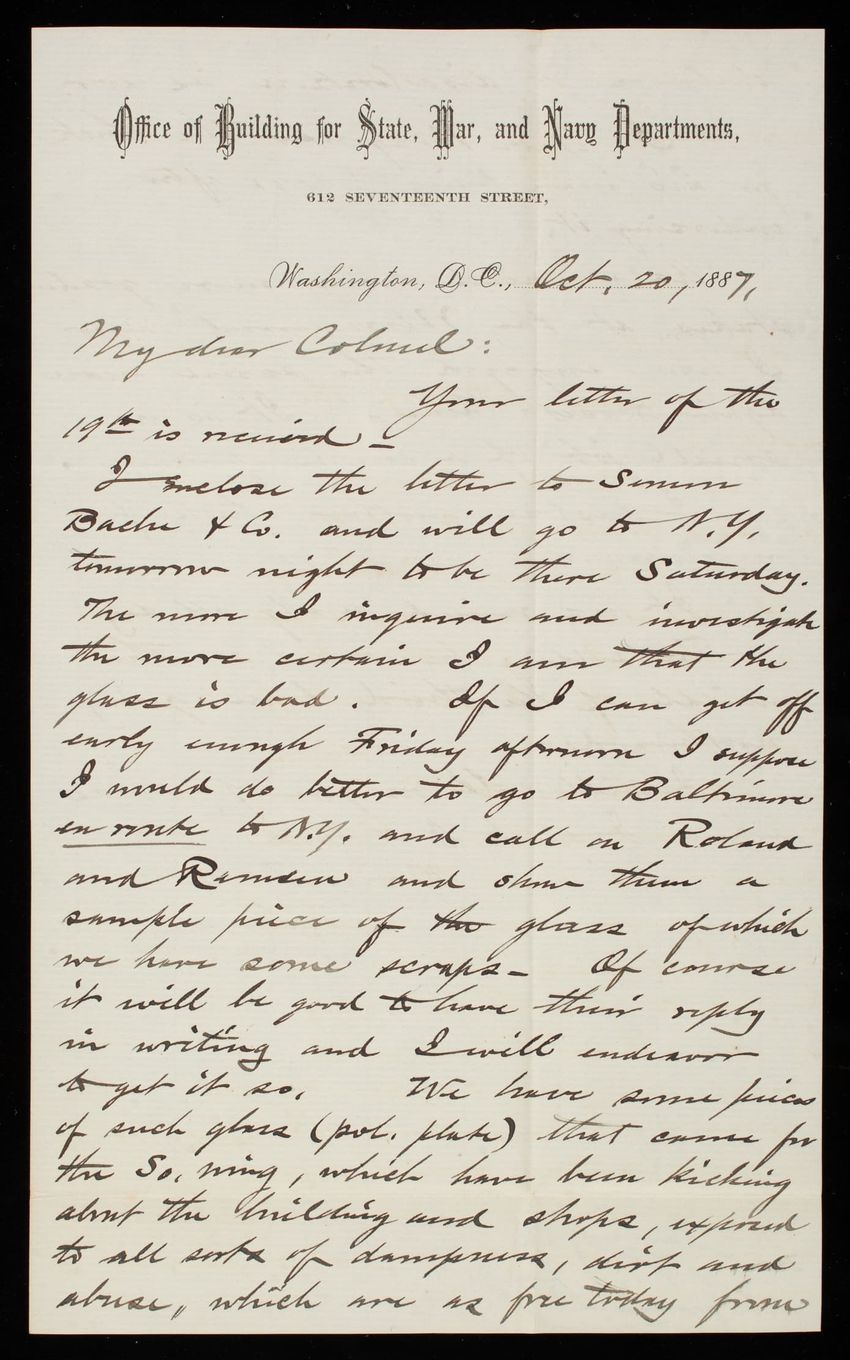 Office of Building for State, War, and Navy Departments,
612 SEVENTEENTH STREET,
Washington, D.C., Oct. 20, 1887,
My dear Colonel:
Your letter of the
19th is received –
I enclose the letter to Semon
Bache & Co. and will go to N.Y.
tomorrow night to be there Saturday.
The more I inquire and investigate
the more certain I am that the
glass is bad. If I can get off
early enough Friday afternoon I suppose
I would do better to go to Baltimore
en route to N.Y. and call on Roland
and Remsen and show them a
sample piece of the glass of which
we have some scraps – Of course
it will be good to have their reply
in writing and I will endeavor
to get it so. We have some pieces
of such glass (pol. plate) that came for
the So. wing, which have been kicking
about the building and shops, exposed
to all sorts of dampness, dirt and
abuse, which are as free today from